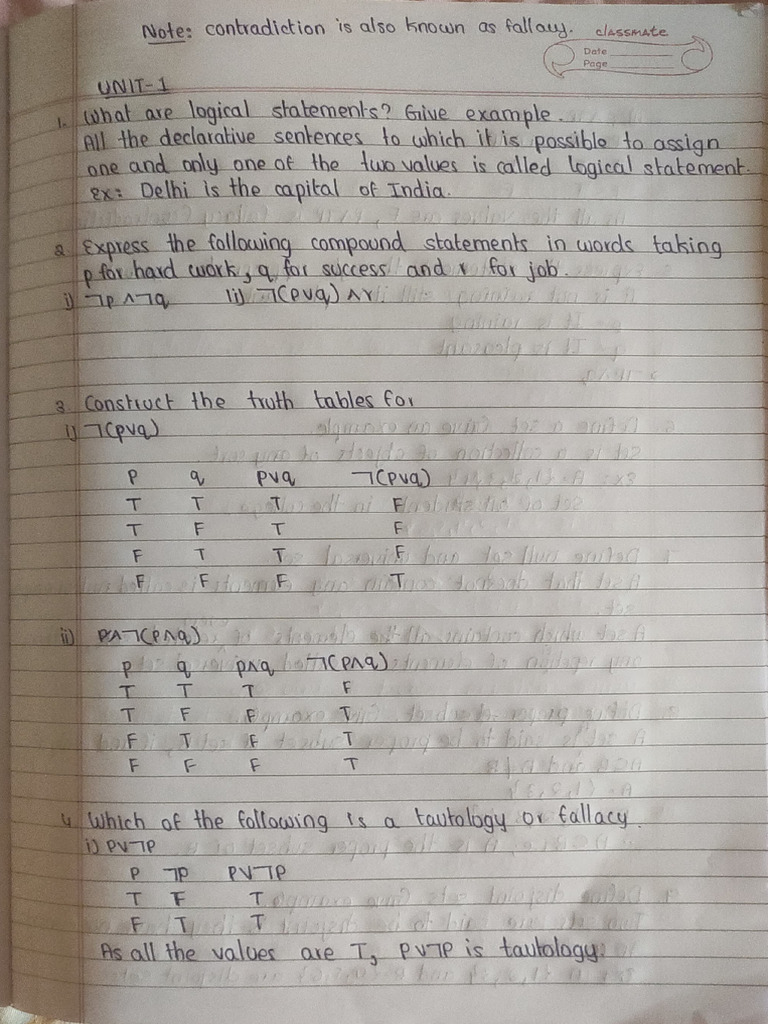 Note: contradiction is also known as fallacy.
classmate
Date
Page
UNIT-1
1. What are logical statements? Give example.
All the declarative sentences to which it is possible to assign
one and only one of the two values is called logical statement.
ex: Delhi is the capital of India.
2. Express the following compound statements in words taking
p for hard work, q for success and r for job.
i) ¬p∧¬q ii) ¬(p∨q)∧r
3. Construct the truth tables for
i) ¬(p∨q)
p q p∨q ¬(p∨q)
T T T F
T F T F
F T T F
F F F T
ii) p∧¬(p∧q)
p q p∧q ¬(p∧q)
T T T F
T F F T
F T F T
F F F T
4. Which of the following is a tautology or fallacy.
i) p∨¬p
p ¬p p∨¬p
T F T
F T T
As all the values are T, p∨¬p is tautology.